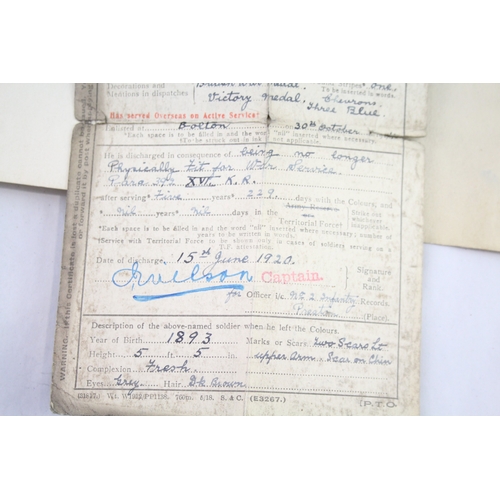 Decorations and British War Medal. stripes One.
Mentions in dispatches Victory Medal, Chevrons,
Three Blue
To be inserted in words.
Has served Overseas on Active Service!
Enlisted at Bolton 30th October
*Each space is to be filled in and the word "nil" inserted where necessary.
(To be struck out in ink if not applicable.
He is discharged in consequence of being no longer
Physically fit for War Service.
Para 392 XVI. K.R.
after serving Five years* 229 days with the Colours, and
Nil years* Nil days in the Army Reserve
Territorial Force†
*Each space is to be filled in and the word "nil" inserted where necessary;
years to be written in words.
Date of discharge 15th June 1920.
Captain. Signature and Rank.
for Officer i/c No 2 Infantry Records.
Preston (Place).
Description of the above-named soldier when he left the Colours.
Year of Birth 1893 Marks or Scars Two Scars Lt
Height 5 ft. 5 in. upper Arm. Scar on Chin
Complexion Fresh
Eyes Grey Hair Dk Brown
(E3267.) (P.T.O.
WARNING.